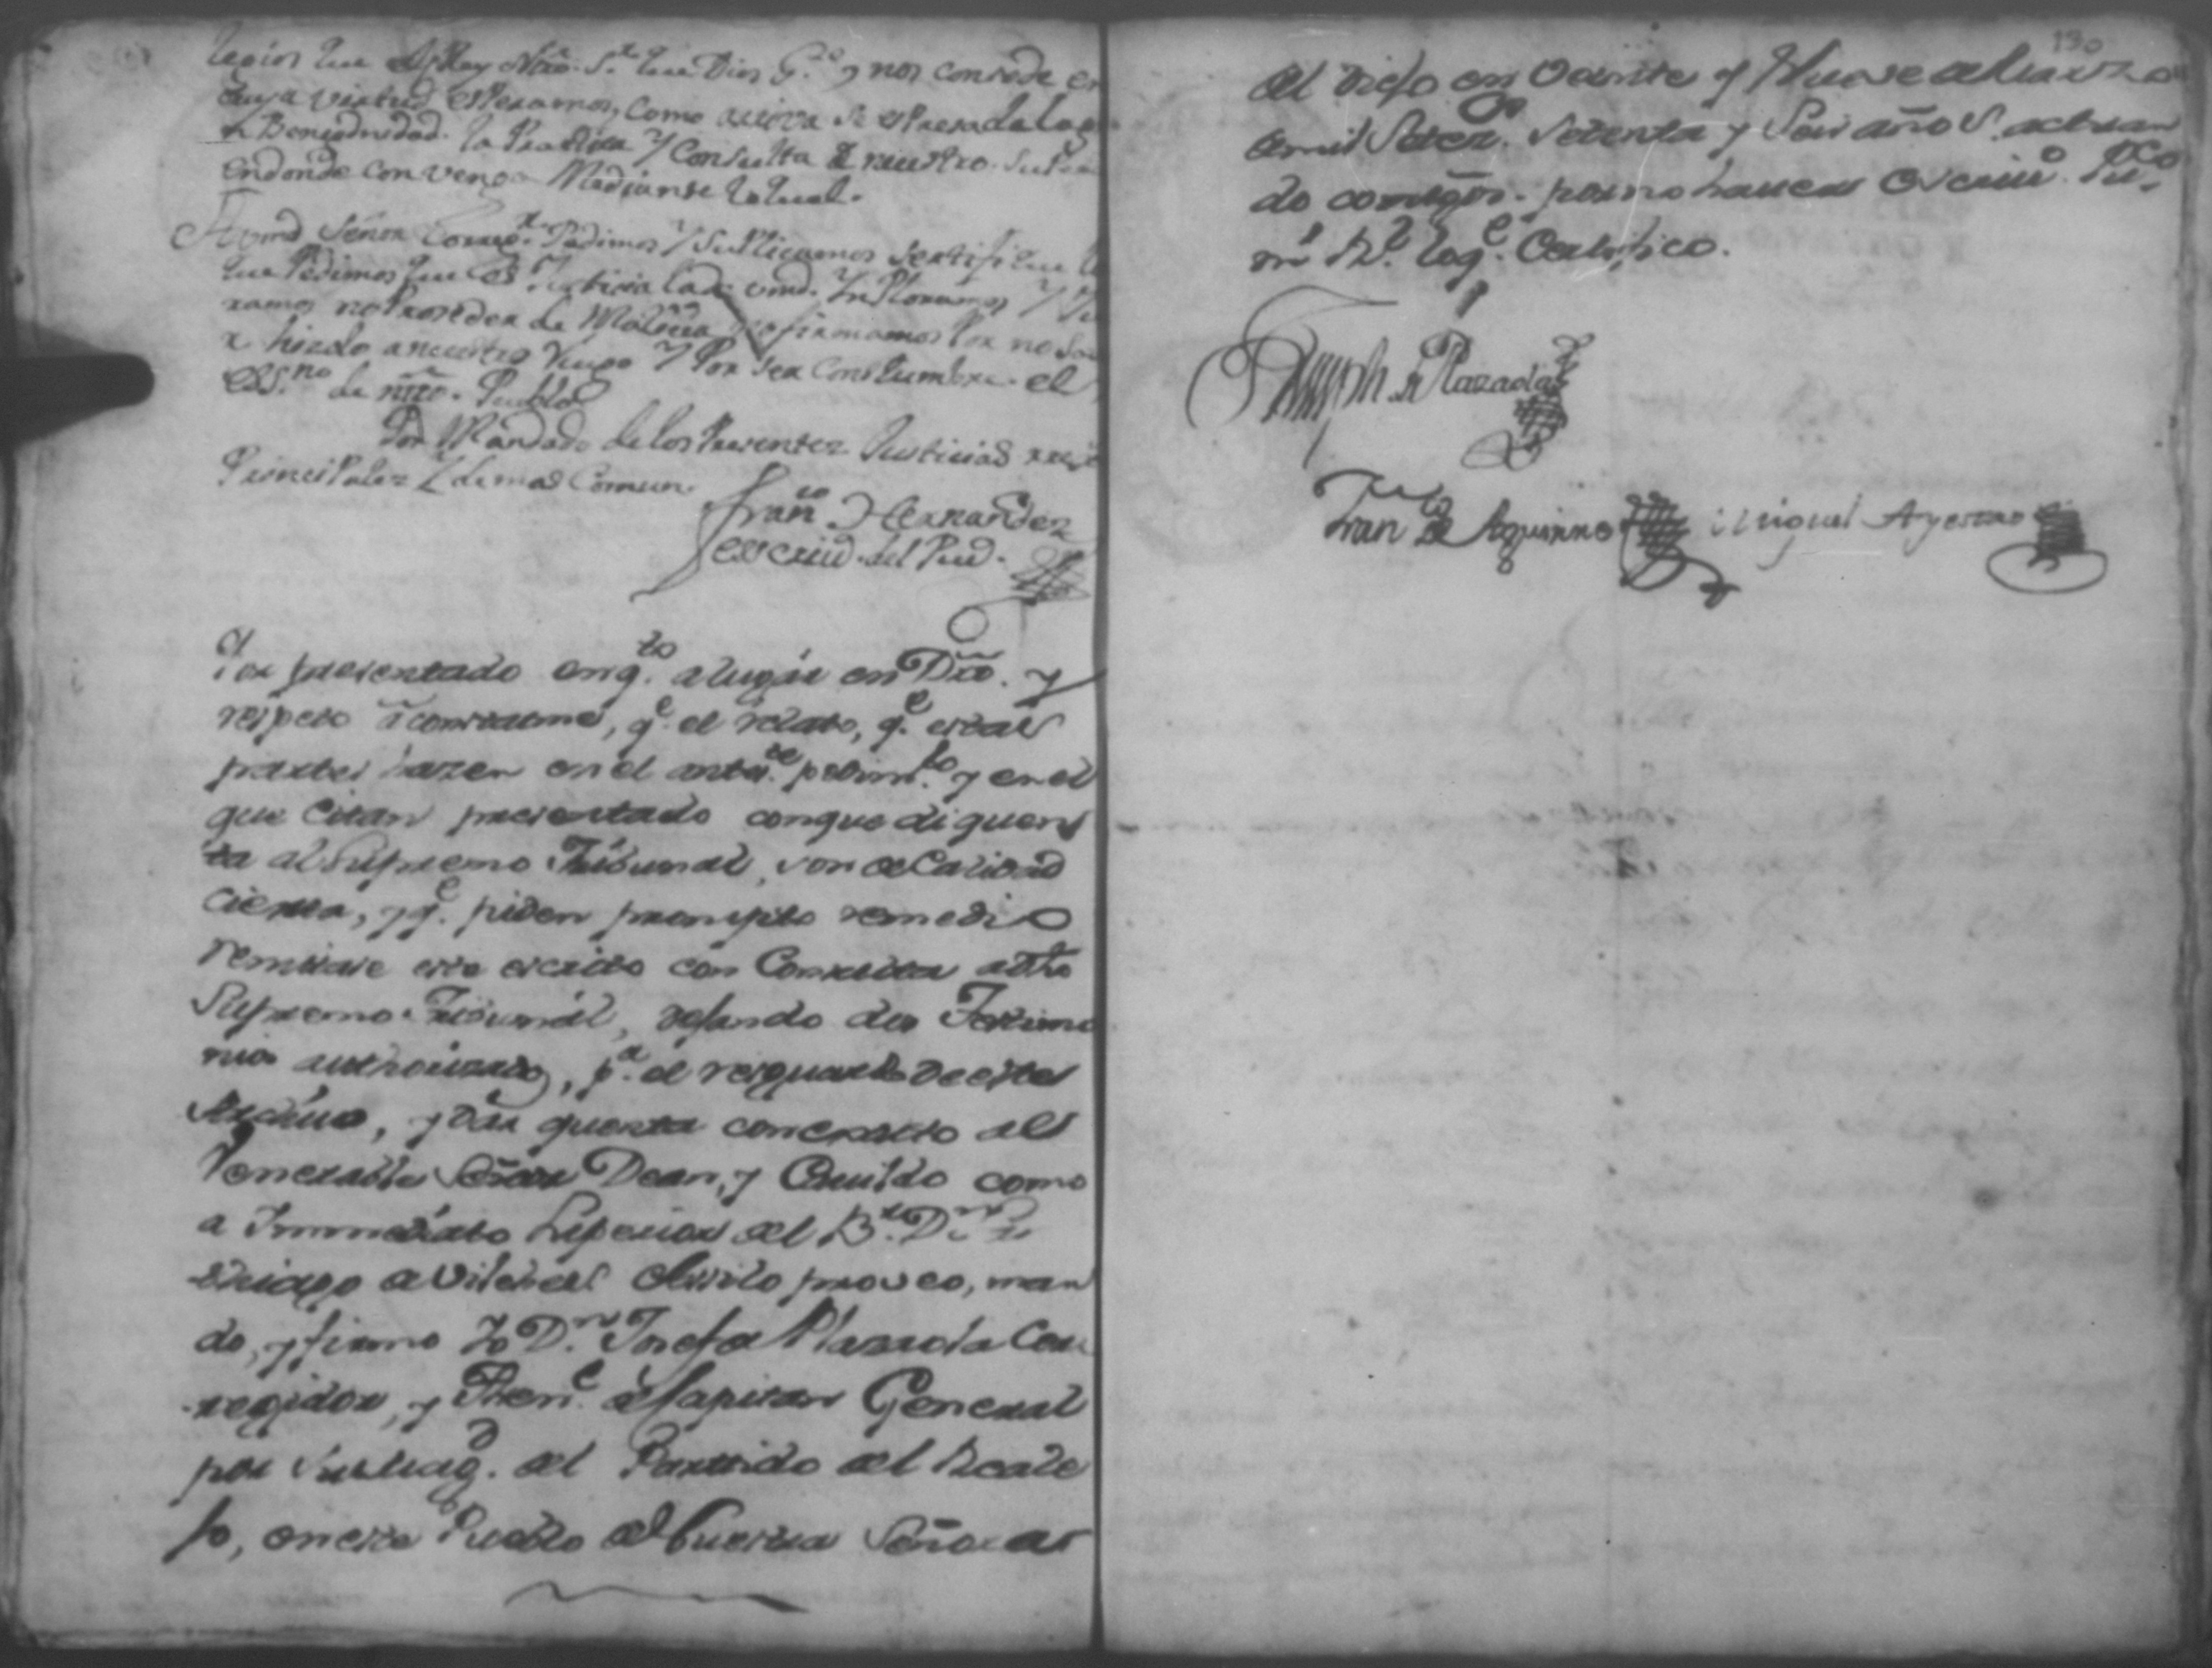 legios que el Rey Ntro. Sr. que Dios G.e y nos consede en
cuya virtud esperamos, como arriva se espresa de la g
Benignidad. la Practica y Consulta nuestro
endonde convenga Mediante lo qual.
A vmd Señor Correg.r Pedimos y Suplicamos sertifique lo
que Pedimos que es Justicia la de vmd. Ynploramos y Ju
ramos no Proseder de Malicia no firmamos Por no sa
hizolo a nuestro Ruego y Por ser Constumbre. el
Es.no de nro. Pueblo
Por Mandado de los Presentes Justicias
Principales y demas Comun.
Fran.co Hernandez
escriv. del Pueb.
Por presentado en q.to a lugar en Dro. y
respeto a constarme, q.e el relato, q.e estas
partes hazen en el ante.te pedim.to y en el
que citan presentado conque di quen
ta al Supremo Tribunal, son de Calidad
cierta, y q.e piden prompto remedio
remitase este escrito con Consulta a dho
Supremo Tribunal, dejando de el Testimo
nio authorizado, p.a el resguardo de este
Archivo, y dar quenta con exacto al
Venerable Señor Dean, y Cavildo como
a Immediato Superior del B.r D.n
de Vilches Assi lo proveo, man
do, y firmo Yo D.n Josef de Plazaola Cor
regidor, y Then.e de Capitan General
por Su Mag.d del Partido del Reale
jo, en este Pueblo de Nuestra Señora de
130
el Viejo en Veinte y Nueve de Marzo
de mil Setez.os Setenta y Seis años actuan
do conmigo. por no haver Escriv.o Pu.co
ni R.l log.e Certifico.
Joseph de Plazaola
Fran.co de Aguirre Miguel Ayerdis